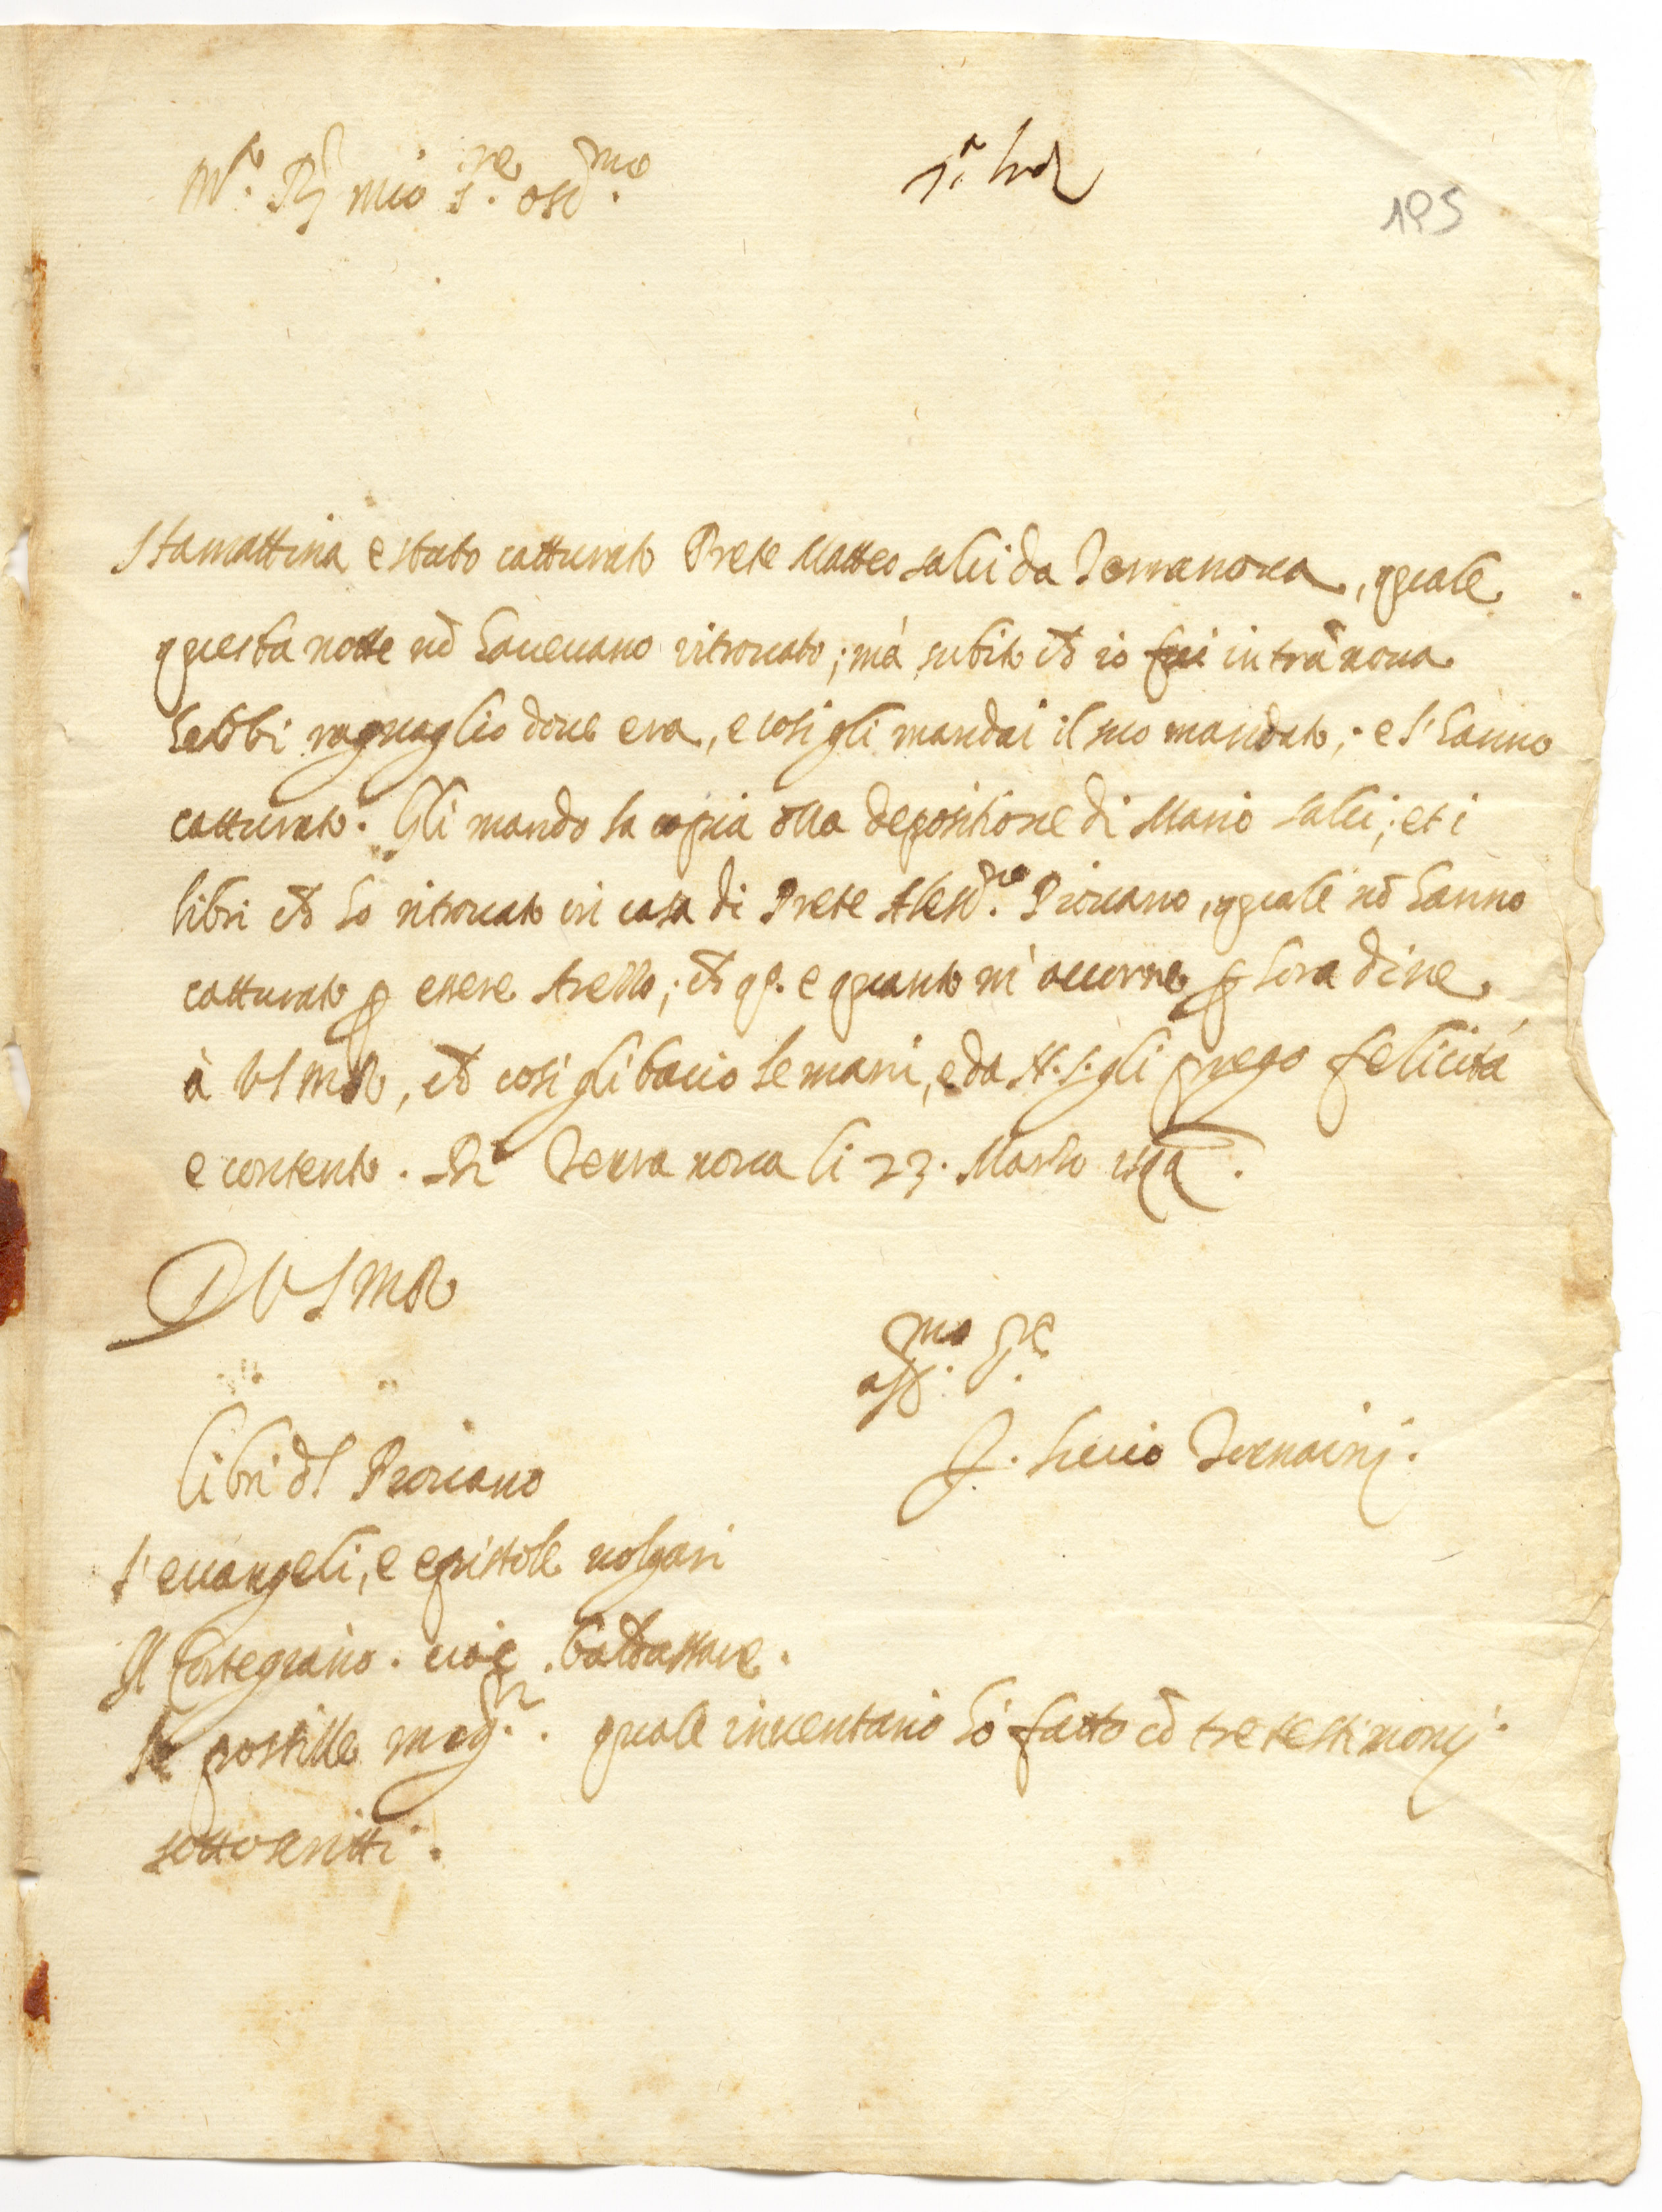 M.to R.do mio s.re oss.mo
195
Stamattina è stato catturato Prete Matteo salui da Terranoua, qquale
qquesta notte nõ haueuano ritrouato; mà subito chẽ io fui in trã noua
hebbi ragguaglio doue era, e cosi gli mandai il suo mandato; e l'hanno
catturato. Gli mando la copia dlla depositione di Mario salui; et i
libri chẽ ho ritrouato in casa di Prete Aless.ro Piouano, qquale nõ hanno
catturato p essere; chẽ qs. e qquanto m'occorre p hora dire
à VSMR, chẽ cosi gli bacio le mani, e da N.S. gli prego felicità
e contento. Di Terra noua li 23. Marzo
D VSMR
aff.mo s.re
F. Liuio
libri dl Piouano
l'euangeli, e epistole uolgari
Il Cortegiano. cioè. Baldassare.
le postille mag.ri. quale inuentario hò fatto cõ tre testimonij
sottoscritti.